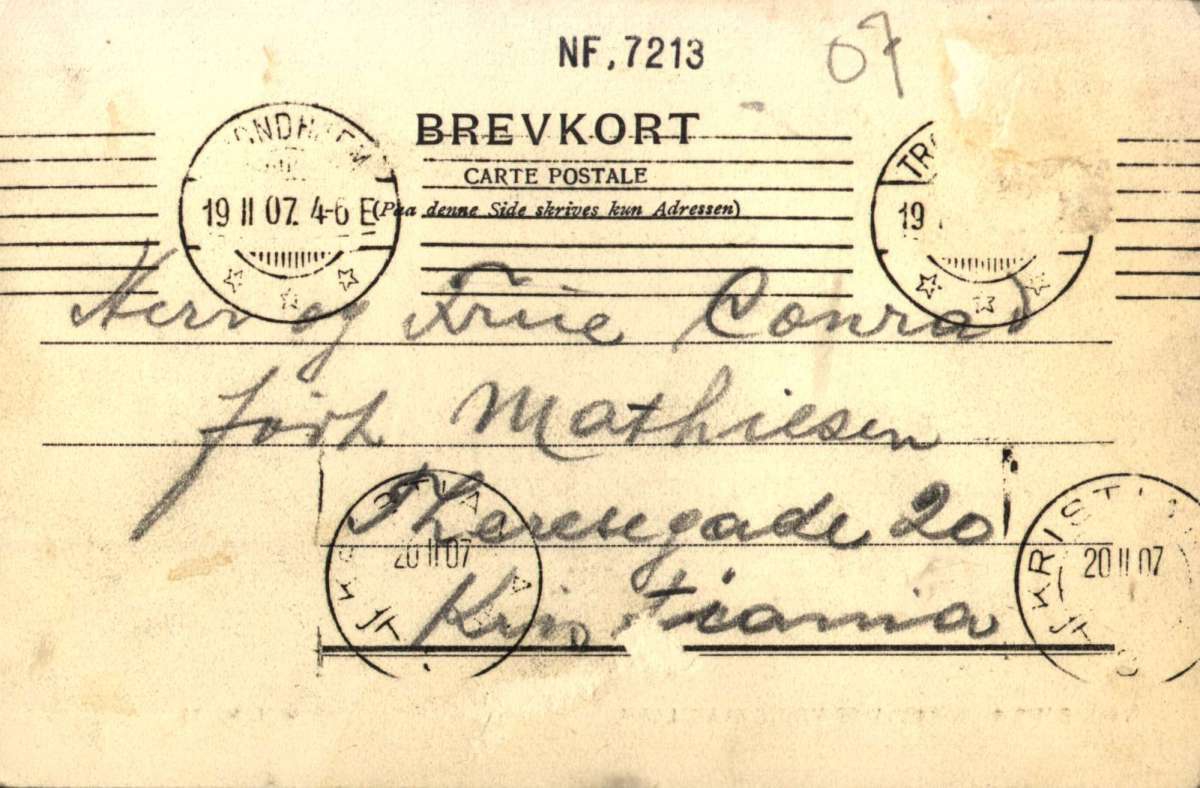 NF, 7213
07
BREVKORT
CARTE POSTALE
(Paa denne Side skrives kun Adressen)
19 II 07. 4-6 E
TR
19
Herr og Frue Conrad
Mathiesen
Theresegade 20
Kristiania
20 II 07
KRISTIA
20 II 07